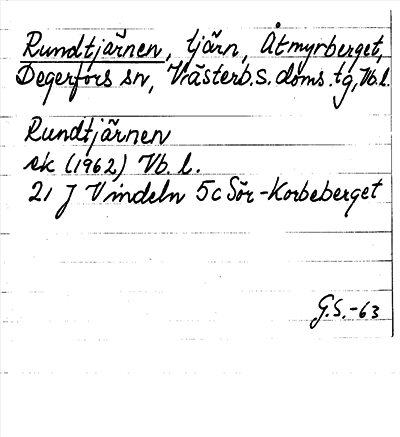 Rundtjärnen, tjärn, Åtmyrberget,
Degerfors sn, Västerb. s. doms. tg, Vb. l.
Rundtjärnen
ek (1962) Vb. l.
21 J Vindeln 5c Sör-Korbeberget
G.S.-63